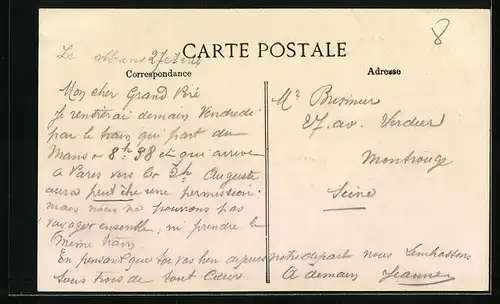 8
CARTE POSTALE
Correspondance
Adresse
Le Mans 27
Mon cher Grand Père
Je rentrerai demain Vendredi
par le train qui part du
Mans à 8h 38 et qui arrive
à Paris vers les 2h Auguste
aura peut être une permission
mais nous ne pourrons pas
voyager ensemble, ni prendre le
même train
En pensant que tu vas bien depuis notre départ nous t'embrassons
tous trois de tout Cœur
À demain Jeanne
Mr Bresnier
27 av. Verdier
Montrouge
Seine